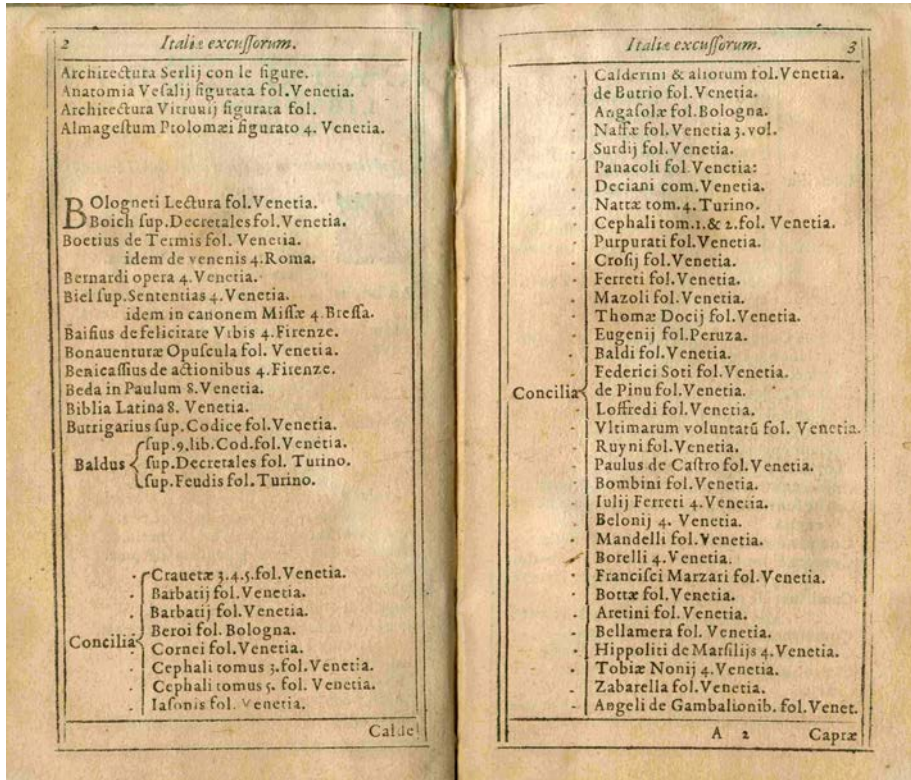 2 Italiæ excuſſorum.
Architectura Serlij con le figure.
Anatomia Veſalij figurata fol. Venetia.
Architectura Vitruuij figurata fol.
Almageſtum Ptolomæi figurato 4. Venetia.
BOlogneti Lectura fol. Venetia.
Boich ſup. Decretales fol. Venetia.
Boetius de Termis fol. Venetia.
idem de venenis 4. Roma.
Bernardi opera 4. Venetia.
Biel ſup. Sententias 4. Venetia.
idem in canonem Miſſæ 4. Breſſa.
Baiſius de felicitate Vrbis 4. Firenze.
Bonauenturæ Opuſcula fol. Venetia.
Benicaſſius de actionibus 4. Firenze.
Beda in Paulum 8. Venetia.
Biblia Latina 8. Venetia.
Butrigarius ſup. Codice fol. Venetia.
ſup. 9. lib. Cod. fol. Venetia.
Baldus ſup. Decretales fol. Turino.
ſup. Feudis fol. Turino.
Crauetæ 3. 4. 5. fol. Venetia.
Barbatij fol. Venetia.
Barbatij fol. Venetia.
Beroi fol. Bologna.
Concilia Cornei fol. Venetia.
Cephali tomus 3. fol. Venetia.
Cephali tomus 5. fol. Venetia.
Iaſonis fol. Venetia.
Calde
Italiæ excuſſorum. 3
Calderini & aliorum fol. Venetia.
de Butrio fol. Venetia.
Angaſolæ fol. Bologna.
Naſſæ fol. Venetia 3. vol.
Surdij fol. Venetia.
Panacoli fol. Venetia:
Deciani com. Venetia.
Nattæ tom. 4. Turino.
Cephali tom. 1. & 2. fol. Venetia.
Purpurati fol. Venetia.
Croſij fol. Venetia.
Ferreti fol. Venetia.
Mazoli fol. Venetia.
Thomæ Docij fol. Venetia.
Eugenij fol. Peruza.
Baldi fol. Venetia.
Federici Soti fol. Venetia.
Concilia de Pinu fol. Venetia.
Loffredi fol. Venetia.
Vltimarum voluntatū fol. Venetia.
Ruyni fol. Venetia.
Paulus de Caſtro fol. Venetia.
Bombini fol. Venetia.
Iulij Ferreti 4. Venetia.
Belonij 4. Venetia.
Mandelli fol. Venetia.
Borelli 4. Venetia.
Franciſci Marzari fol. Venetia.
Bottæ fol. Venetia.
Aretini fol. Venetia.
Bellamera fol. Venetia.
Hippoliti de Marſilijs 4. Venetia.
Tobiæ Nonij 4. Venetia.
Zabarella fol. Venetia.
Angeli de Gambalionib. fol. Venet.
A 2 Capræ